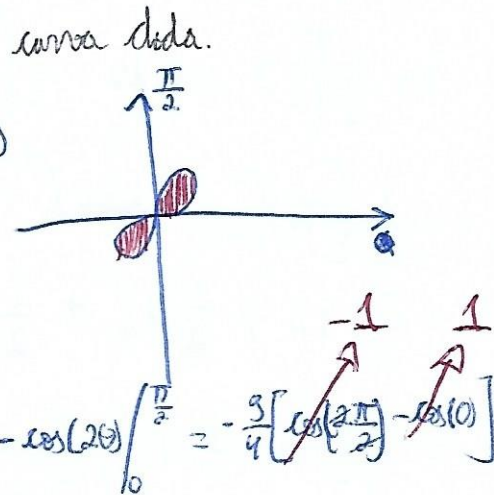 curva dada.
π/2
)
0
-1 1
-cos(2θ) |_0^{π/2} = -9/4 [cos(2·π/2) - cos(0)]